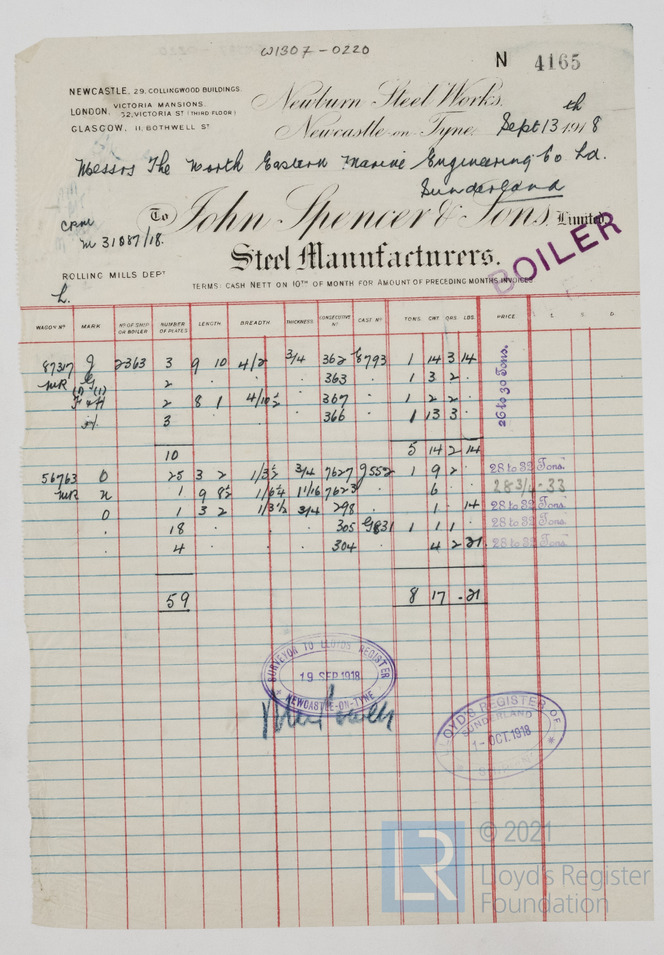 W1307-0220
N 4165
NEWCASTLE, 29. COLLINGWOOD BUILDINGS.
LONDON, VICTORIA MANSIONS. 32, VICTORIA ST (THIRD FLOOR)
GLASGOW, 11, BOTHWELL ST
Newburn Steel Works,
Newcastle-on-Tyne, Sept 13th 1918
Messrs The North Eastern Marine Engineering Co Ld.
Sunderland
To John Spencer & Sons, Limited,
M 31087/18.
Steel Manufacturers.
BOILER
ROLLING MILLS DEPT
TERMS: CASH NETT ON 10TH OF MONTH FOR AMOUNT OF PRECEDING MONTHS INVOICES.
L.
WAGON No MARK No OF SHIP OR BOILER NUMBER OF PLATES LENGTH BREADTH THICKNESS CONSECUTIVE No CAST No TONS CWT QRS LBS PRICE £ S. D.
87317 G 2363 3 9 10 4/2 3/4 362 8793 1 14 3 14
MR 2 · · · 363 · 1 3 2 ·
F & H 2 8 1 4/10½ · 367 · 1 2 2 ·
3 · · · 366 · 1 13 3 ·
26 to 30 Tons.
10 5 14 2 14
56763 O 25 3 2 1/3½ 3/4 7627 9552 1 9 2 · 28 to 32 Tons.
MR N 1 9 8½ 1/6¼ 1 1/16 7623 6 28 3/4 - 33
O 1 3 2 1/3½ 3/4 298 · 1 · 14 28 to 32 Tons.
· 18 · · · 305 G831 1 1 1 · 28 to 32 Tons.
· 4 · · · 304 · 4 2 21. 28 to 32 Tons.
59 8 17 - 21
SURVEYOR TO LLOYDS REGISTER
19 SEP 1918
NEWCASTLE-ON-TYNE
LLOYD'S REGISTER OF
SUNDERLAND
1-OCT.1918
LR © 2021
Lloyd's Register
Foundation